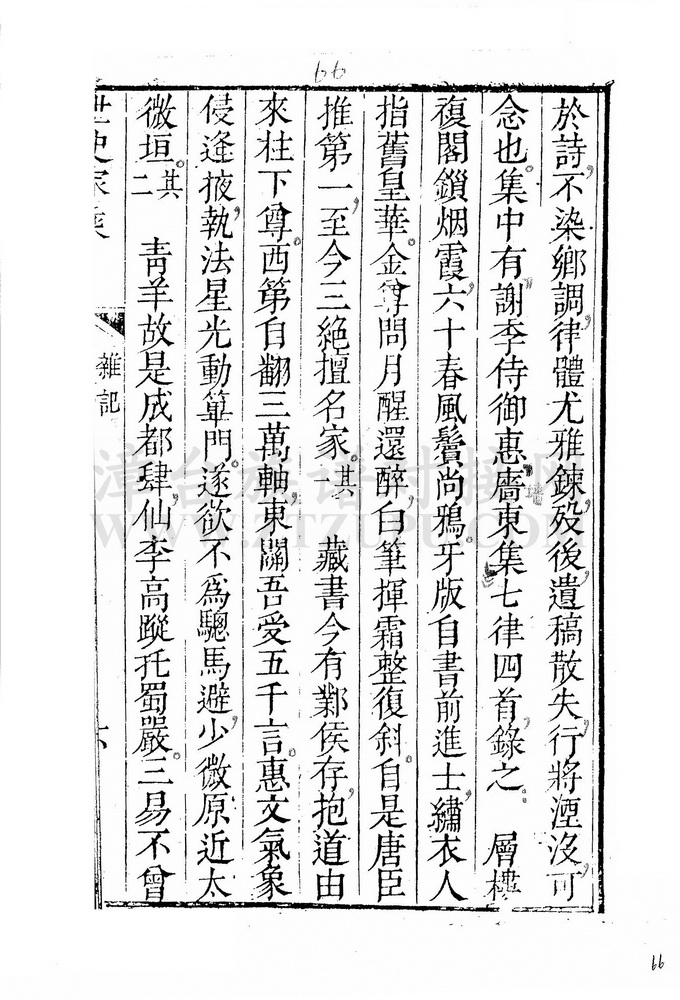 66
於詩不染鄉調律體尤雅鍊歿後遺稿散失行將湮沒可
念也集中有謝李侍御惠齋東集七律四首錄之　層樓
複閣鎖烟霞六十春風鬢尚鴉牙版自書前進士繡衣人
指舊皇華金尊問月醒還醉白筆揮霜整復斜自是唐臣
推第一至今三絕擅名家其一　藏書今有鄴侯存抱道由
來柱下尊西第自翻三萬軸東關吾受五千言惠文氣象
侵逢掖執法星光動篳門遂欲不為驄馬避少微原近太
微垣其二　青羊故是成都肆仙李高蹤托蜀嚴三易不曾
雜記
六
漳台族谱对接网
WWW.ZTZUPU.COM
66